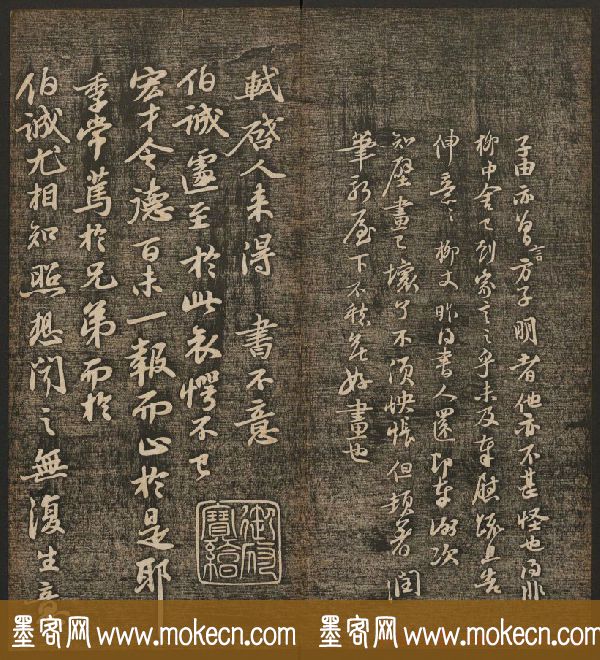 子由亦曾言方子明者他亦不甚怪也得非
柳中舍已到家言之乎未及奉慰疏且告
伸意伸意柳丈昨得書人還即奉謝次
知壁畫已壞了不須快悵但頓著潤
筆新屋下不愁無好畫也
軾啓人來得書不意
伯誠遽至於此哀愕不已
宏才令德百未一報而止於是耶
季常篤於兄弟而於
伯誠尤相知照想聞之無復生意
御府寶繪
墨客网 www.mokecn.com
墨客网 www.mokecn.com